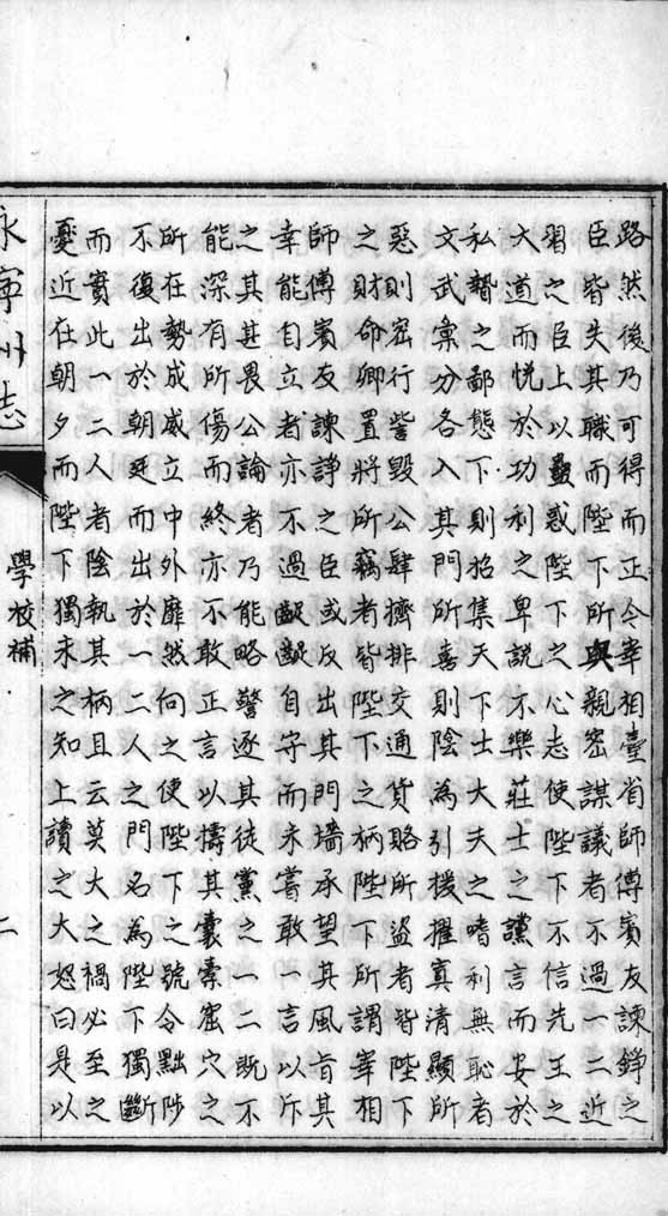 路然後乃可得而正今宰相臺省師傅賓友諫錚之
臣皆失其職而陛下所與親密謀議者不過一二近
習之臣上以蠱惑陛下之心志使陛下不信先王之
大道而悅於功利之卑説不樂莊士之讜言而安於
私䙝之鄙態下則招集天下士大夫之嗜利無恥者
文武彙分各入其門所喜則陰為引援擢寘清顯所
惡則密行訾毀公肆擠排交通貨賂所盜者皆陛下
之財命卿置將所竊者皆陛下之柄陛下所謂宰相
師傅賓友諫諍之臣或反出其門墻承望其風旨其
幸能自立者亦不過齪齪自守而未嘗敢一言以斥
之其甚畏公論者乃能略警逐其徒黨之一二既不
能深有所傷而終亦不敢正言以擣其囊橐窟穴之
所在勢成威立中外靡然向之使陛下之號令黜陟
不復出於朝廷而出於一二人之門名為陛下獨斷
而實此一二人者陰執其柄且云莫大之禍必至之
憂近在朝夕而陛下獨未之知上讀之大怒曰是以
永寧州志
學校補
二